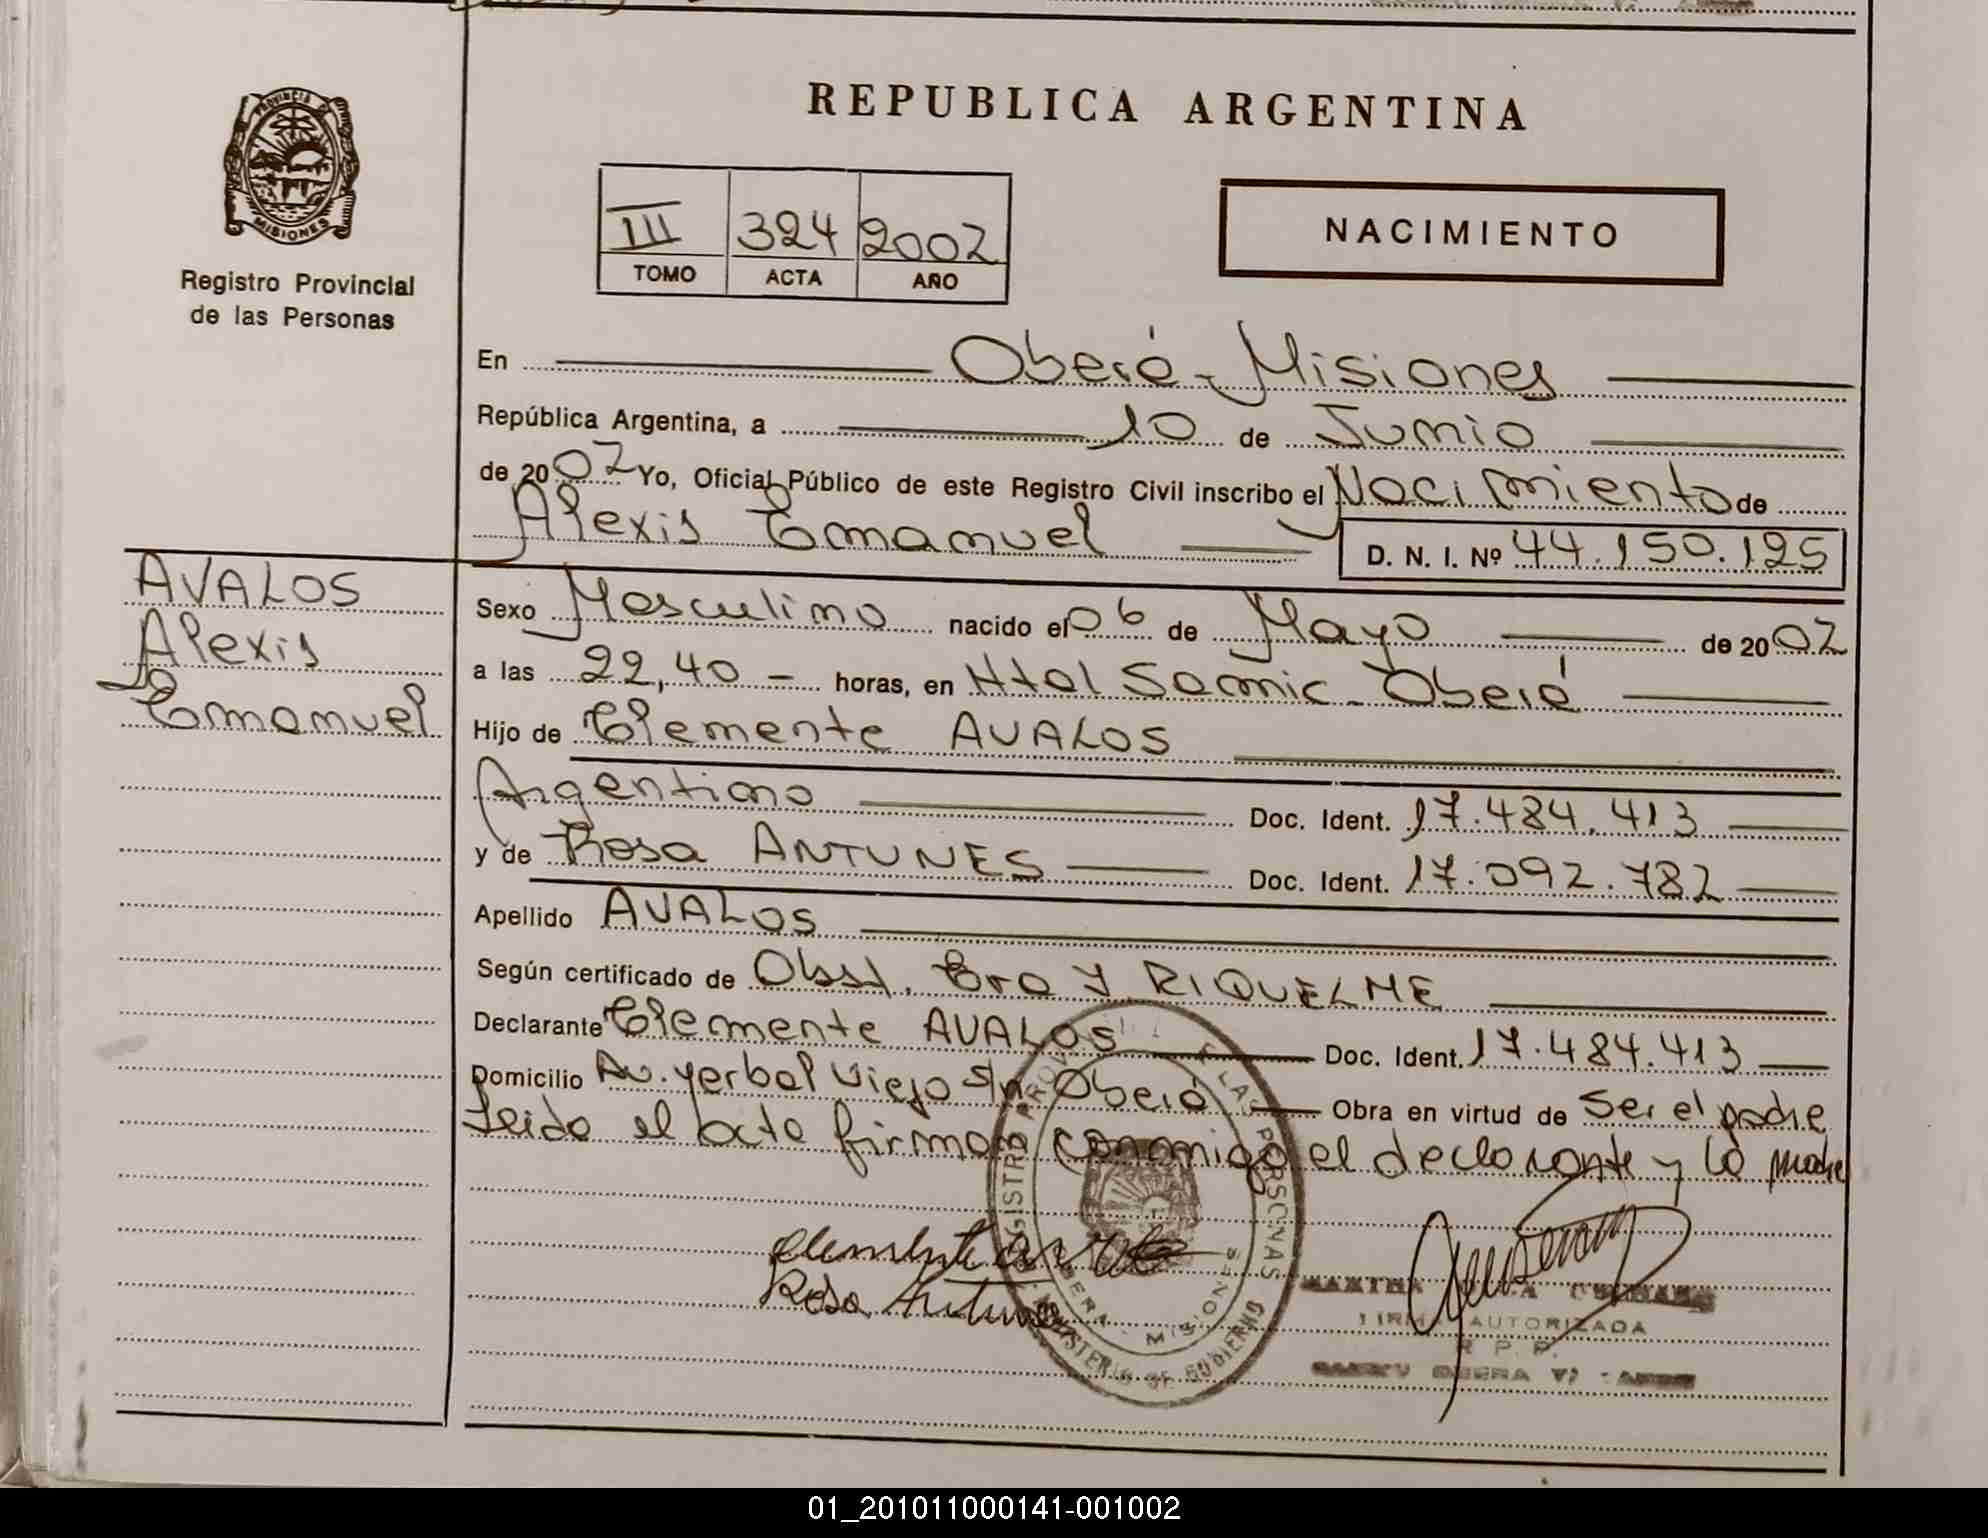 REPUBLICA ARGENTINA
PROVINCIA DE
MISIONES
Registro Provincial
de las Personas
III 324 2002
TOMO ACTA AÑO
NACIMIENTO
En Oberá - Misiones
República Argentina, a 10 de Junio
de 2002 Yo, Oficial Público de este Registro Civil inscribo el Nacimiento de
Alexis Emanuel D. N. I. Nº 44.150.125
AVALOS
Alexis
Emanuel
Sexo Masculino nacido el 06 de Mayo de 2002
a las 22,40 - horas, en Htal Samic - Oberá
Hijo de Clemente AVALOS
Argentino Doc. Ident. 17.484.413
y de Rosa ANTUNES Doc. Ident. 17.092.782
Apellido AVALOS
Según certificado de Obst. Y RIQUELME
Declarante Clemente AVALOS Doc. Ident. 17.484.413
Domicilio Av. yerbal Viejo s/n Oberá Obra en virtud de Ser el padre
Leida el acta firman conmigo el declarante y la madre
Rosa Antunes
REGISTRO PROV DE LAS PERSONAS
MINISTERIO DE GOBIERNO
OBERA - MISIONES
FIRMA AUTORIZADA
R. P. P.
01_201011000141-001002